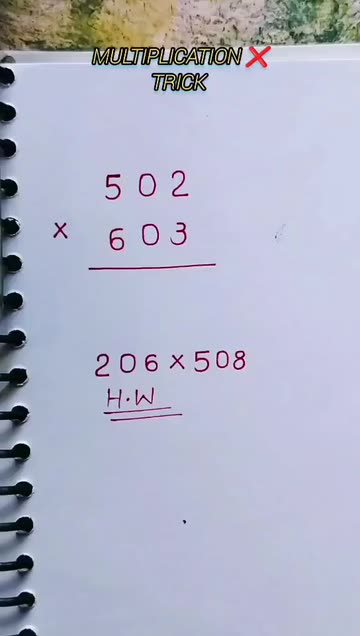 MULTIPLICATION ❌
TRICK
5 0 2
x 6 0 3
206 x 508
H.W